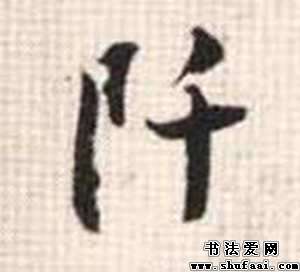 阡
书法爱网
www.shufaai.com